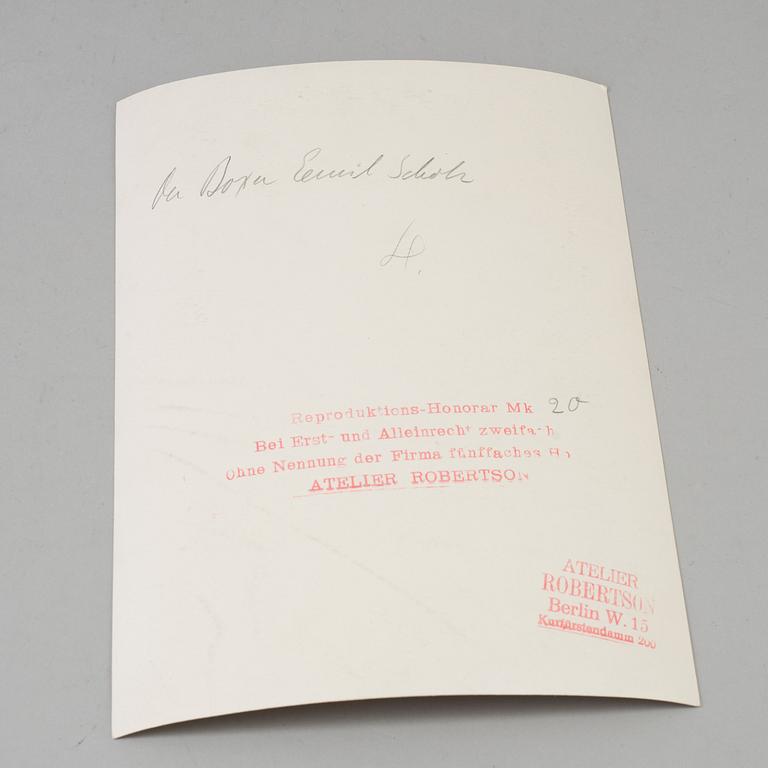 Der Boxer Emil Scholz
H.
Reproduktions-Honorar Mk 20
Bei Erst- und Alleinrecht zweifach
Ohne Nennung der Firma fünffaches Ho
ATELIER ROBERTSON
ATELIER
ROBERTSON
Berlin W. 15
Kurfürstendamm 200